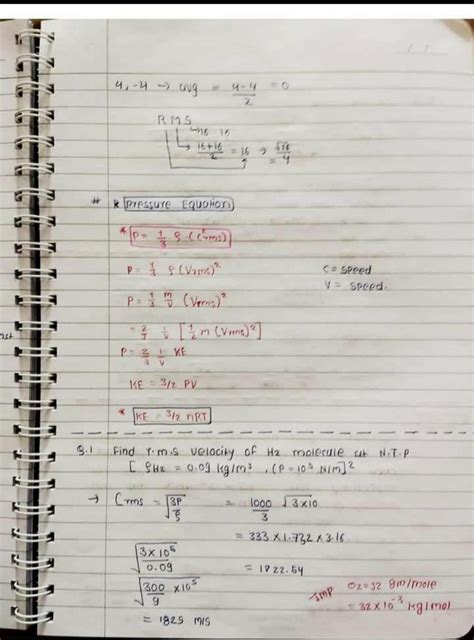 4, -4 → avg = 4-4/2 = 0
RMS
↳16 16
↳ 16+16/2 = 16 → √16
= 4
# R Pressure Equation
* P = 1/3 ρ (C²rms)
P = 1/3 ρ (Vrms)²
C = speed
V = speed.
P = 1/3 m/V (Vrms)²
= 2/3 1/V [1/2 m (Vrms)²]
P = 2/3 1/V KE
KE = 3/2 PV
* KE = 3/2 nRT
Q.1 Find r.m.s velocity of H2 molecule at N.T.P
[ρH2 = 0.09 kg/m³, (P = 10⁵ N/m]²
→ Crms = √3P/ρ = 1000/3 √3×10
= 333 × 1.732 × 3.16
√3×10⁵/0.09 = 1822.54
√300/9 × 10⁵
= 1825 m/s
IMP O2=32 gm/mole
= 32×10⁻³ kg/mol